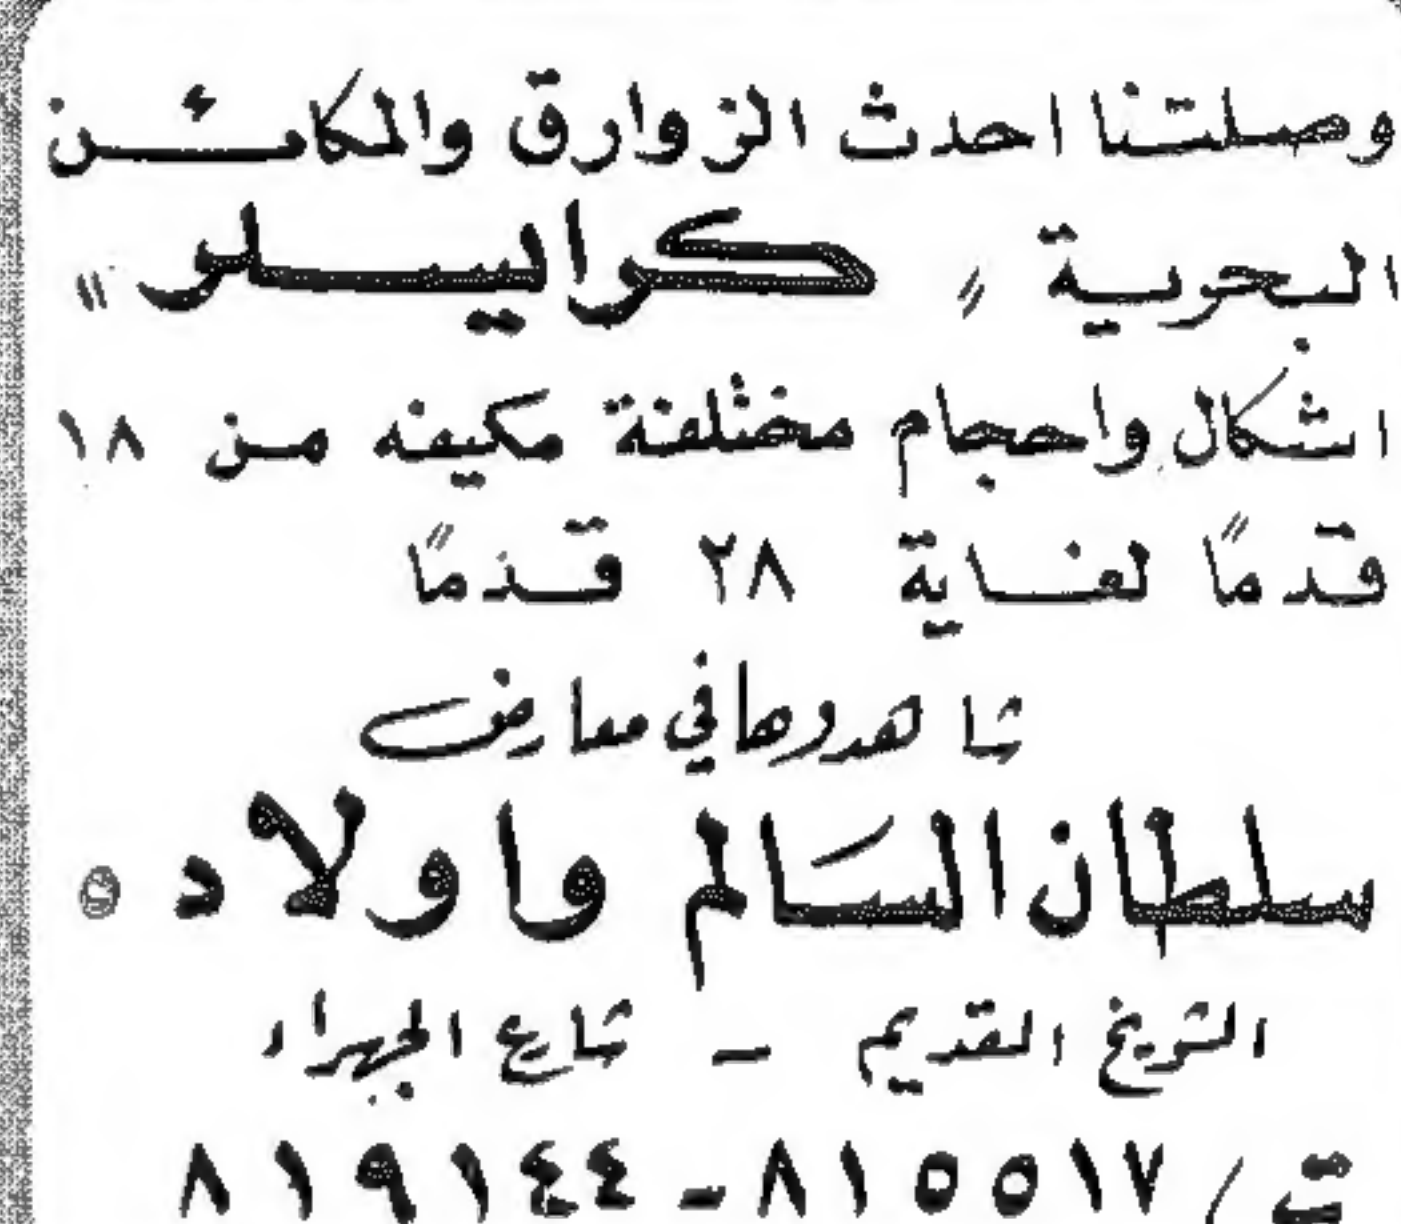 وصلتنا احدث الزوارق والمكائن
البحرية " كرايسلر "
اشكال واحجام مختلفة مكيفه من ١٨
قدمًا لغاية ٢٨ قدمًا
شاهدوها في معارض
سلطان السالم واولاده
الشويخ القديم - شارع الجهراء
ت / ٨١٥٥١٧ - ٨١٩١٤٤